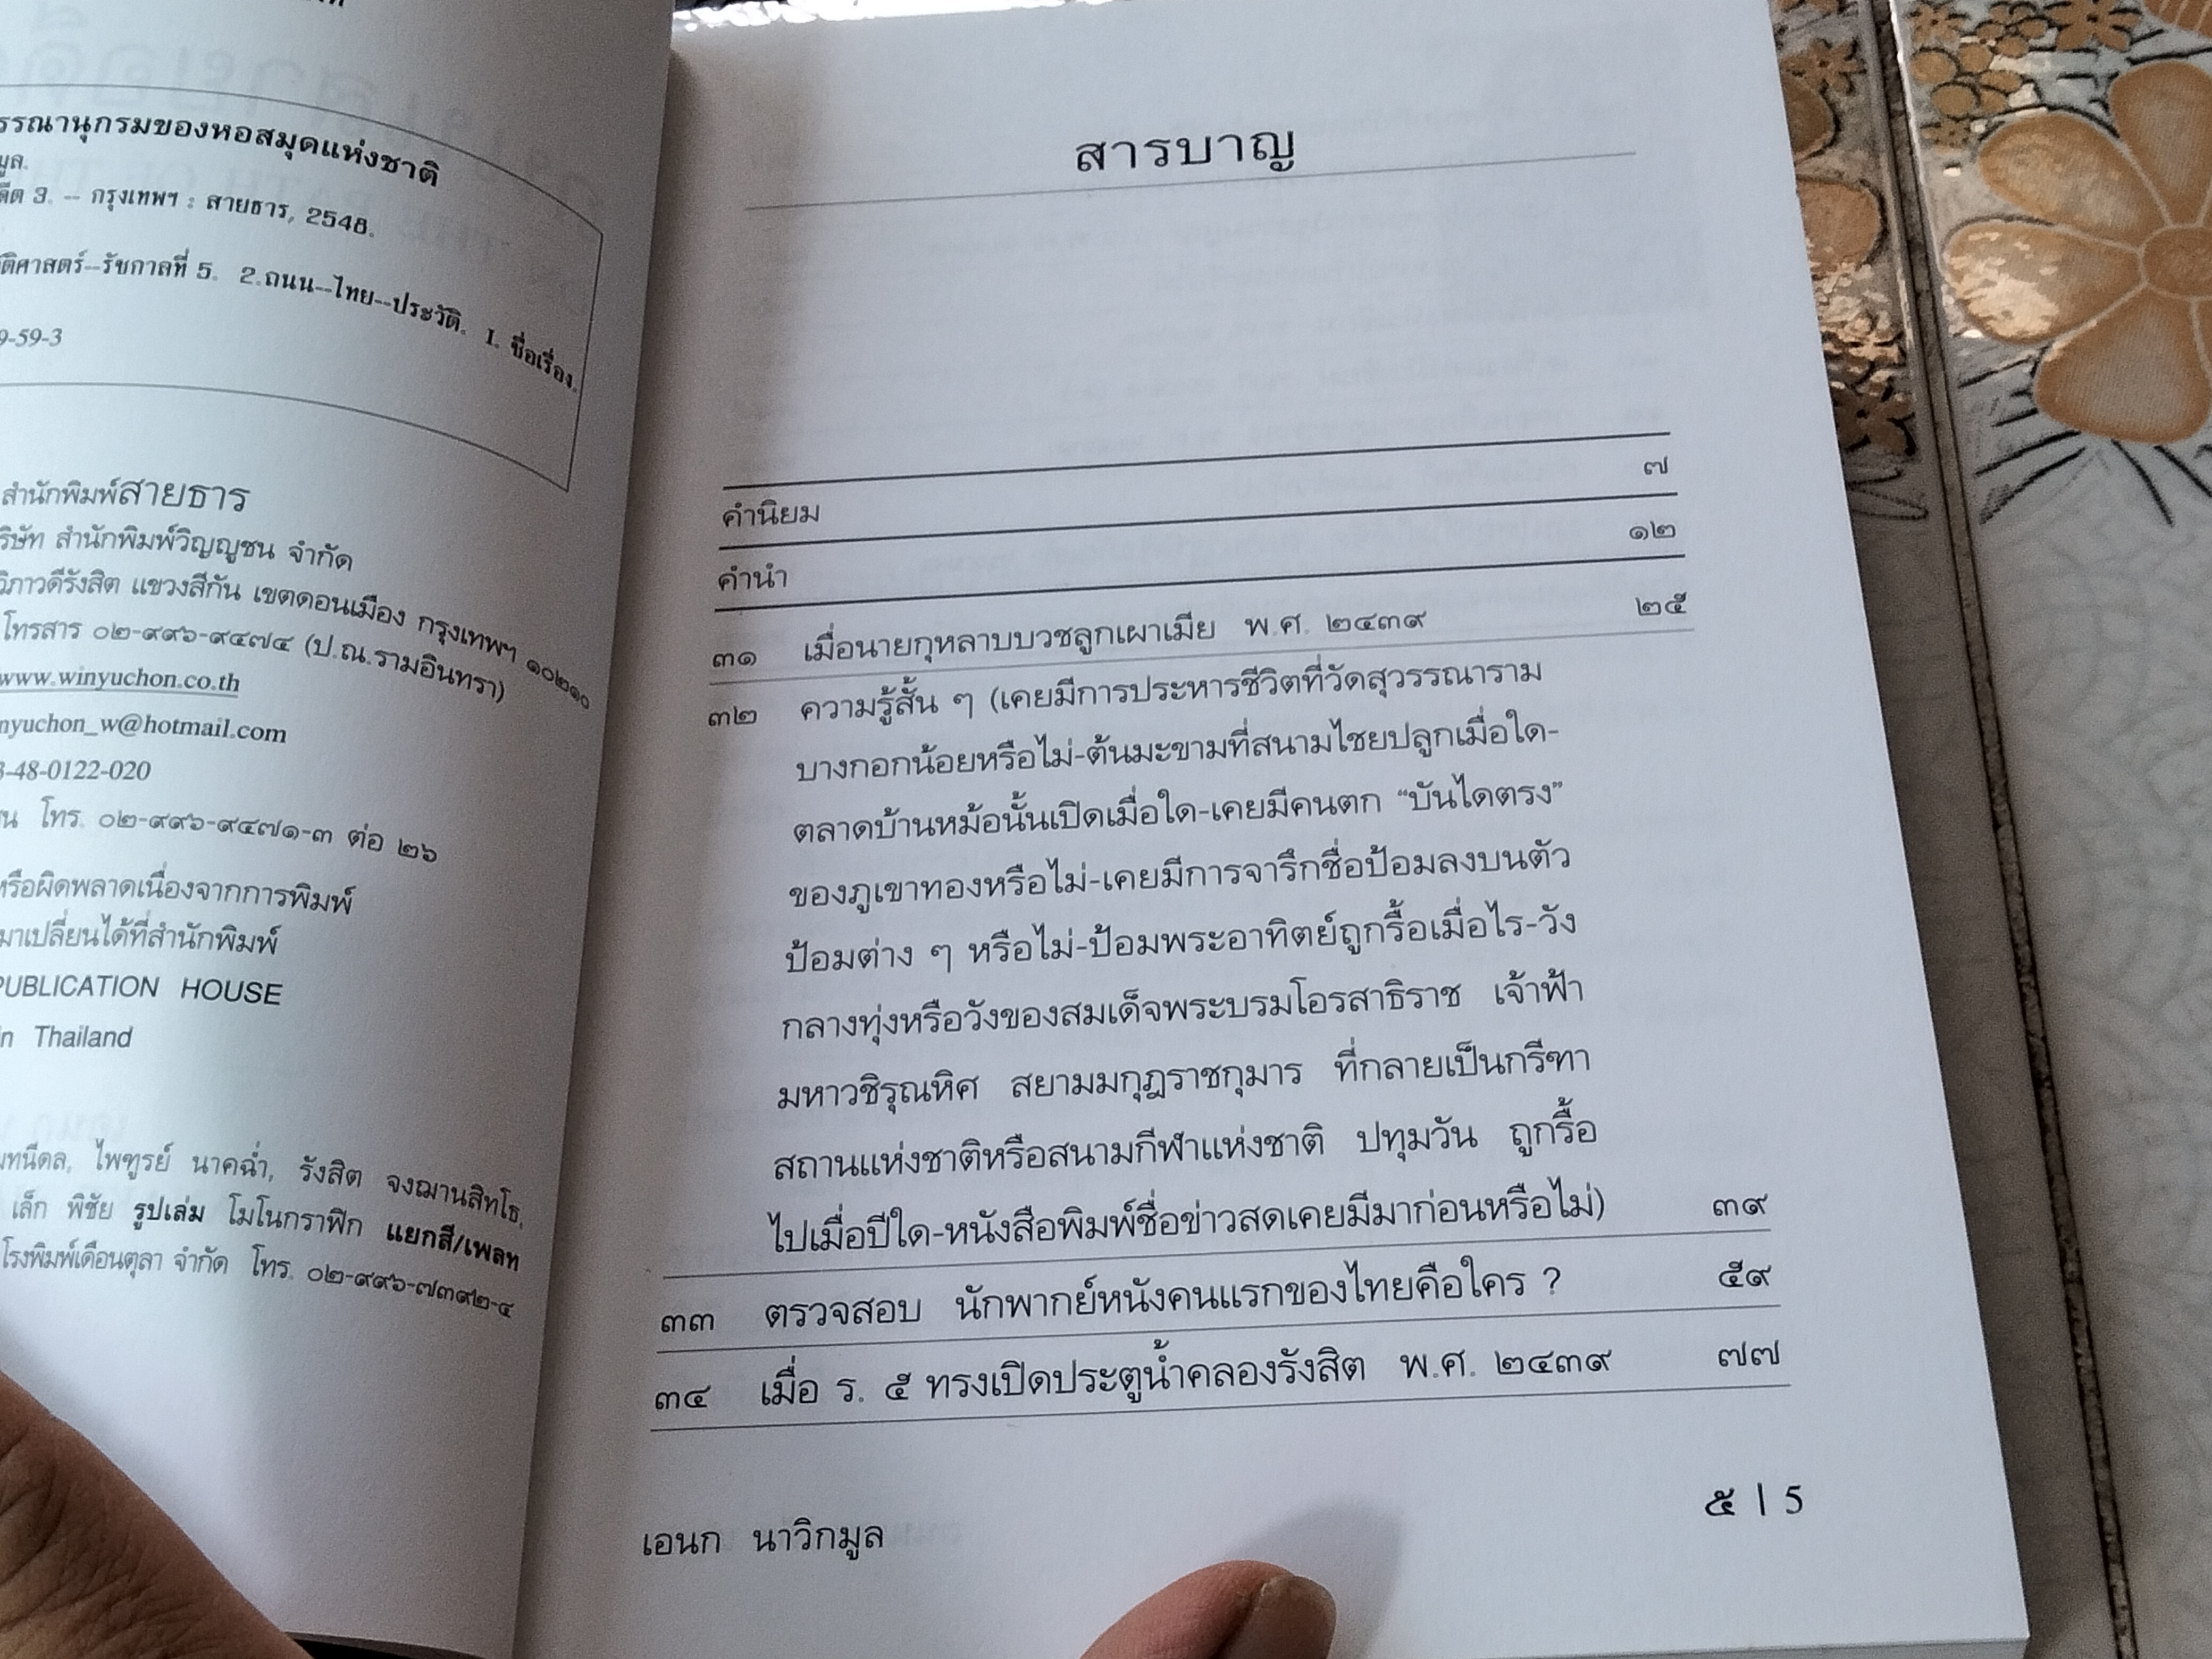 รรณานุกรมของหอสมุดแห่งชาติ
มูล.
ดีต 3. -- กรุงเทพฯ : สายธาร, 2548.
ติศาสตร์--รัชกาลที่ 5. 2.ถนน--ไทย--ประวัติ. I. ชื่อเรื่อง.
9-59-3
สำนักพิมพ์สายธาร
ริษัท สำนักพิมพ์วิญญูชน จำกัด
วิภาวดีรังสิต แขวงสีกัน เขตดอนเมือง กรุงเทพฯ ๑๐๒๑๐
โทรสาร ๐๒-๙๙๖-๙๔๗๔ (ป.ณ.รามอินทรา)
www.winyuchon.co.th
nyuchon_w@hotmail.com
3-48-0122-020
น โทร. ๐๒-๙๙๖-๙๔๗๑-๓ ต่อ ๒๖
หรือผิดพลาดเนื่องจากการพิมพ์
มาเปลี่ยนได้ที่สำนักพิมพ์
PUBLICATION HOUSE
in Thailand
ไพฑูรย์ นาคฉ่ำ, รังสิต จงฌานสิทโธ,
เล็ก พิชัย รูปเล่ม โมโนกราฟิก แยกสี/เพลท
โรงพิมพ์เดือนตุลา จำกัด โทร. ๐๒-๙๙๖-๗๓๙๒-๔
สารบาญ
คำนิยม ๗
คำนำ ๑๒
๓๑ เมื่อนายกุหลาบบวชลูกเผาเมีย พ.ศ. ๒๔๓๙ ๒๕
๓๒ ความรู้สั้น ๆ (เคยมีการประหารชีวิตที่วัดสุวรรณาราม
บางกอกน้อยหรือไม่-ต้นมะขามที่สนามไชยปลูกเมื่อใด-
ตลาดบ้านหม้อนั้นเปิดเมื่อใด-เคยมีคนตก “บันไดตรง”
ของภูเขาทองหรือไม่-เคยมีการจารึกชื่อป้อมลงบนตัว
ป้อมต่าง ๆ หรือไม่-ป้อมพระอาทิตย์ถูกรื้อเมื่อไร-วัง
กลางทุ่งหรือวังของสมเด็จพระบรมโอรสาธิราช เจ้าฟ้า
มหาวชิรุณหิศ สยามมกุฎราชกุมาร ที่กลายเป็นกรีฑา
สถานแห่งชาติหรือสนามกีฬาแห่งชาติ ปทุมวัน ถูกรื้อ
ไปเมื่อปีใด-หนังสือพิมพ์ชื่อข่าวสดเคยมีมาก่อนหรือไม่) ๓๙
๓๓ ตรวจสอบ นักพากย์หนังคนแรกของไทยคือใคร ? ๕๙
๓๔ เมื่อ ร. ๕ ทรงเปิดประตูน้ำคลองรังสิต พ.ศ. ๒๔๓๙ ๗๗
เอนก นาวิกมูล ๕ | 5